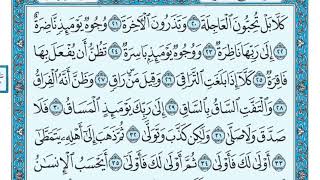 كَلَّا بَلْ تُحِبُّونَ ٱلْعَاجِلَةَ ٢٠ وَتَذَرُونَ ٱلْأَخِرَةَ ٢١ وُجُوهٌ يَوْمَئِذٍ نَّاضِرَةٌ
٢٢ إِلَىٰ رَبِّهَا نَاظِرَةٌ ٢٣ وَوُجُوهٌ يَوْمَئِذٍۭ بَاسِرَةٌ ٢٤ تَظُنُّ أَن يُفْعَلَ بِهَا
فَاقِرَةٌ ٢٥ كَلَّآ إِذَا بَلَغَتِ ٱلتَّرَاقِيَ ٢٦ وَقِيلَ مَنْ رَاقٍ ٢٧ وَظَنَّ أَنَّهُ ٱلْفِرَاقُ
٢٨ وَٱلْتَفَّتِ ٱلسَّاقُ بِٱلسَّاقِ ٢٩ إِلَىٰ رَبِّكَ يَوْمَئِذٍ ٱلْمَسَاقُ ٣٠ فَلَا
صَدَّقَ وَلَا صَلَّىٰ ٣١ وَلَٰكِن كَذَّبَ وَتَوَلَّىٰ ٣٢ ثُمَّ ذَهَبَ إِلَىٰٓ أَهْلِهِۦ يَتَمَطَّىٰٓ
٣٣ أَوْلَىٰ لَكَ فَأَوْلَىٰ ٣٤ ثُمَّ أَوْلَىٰ لَكَ فَأَوْلَىٰٓ ٣٥ أَيَحْسَبُ ٱلْإِنسَٰنُ